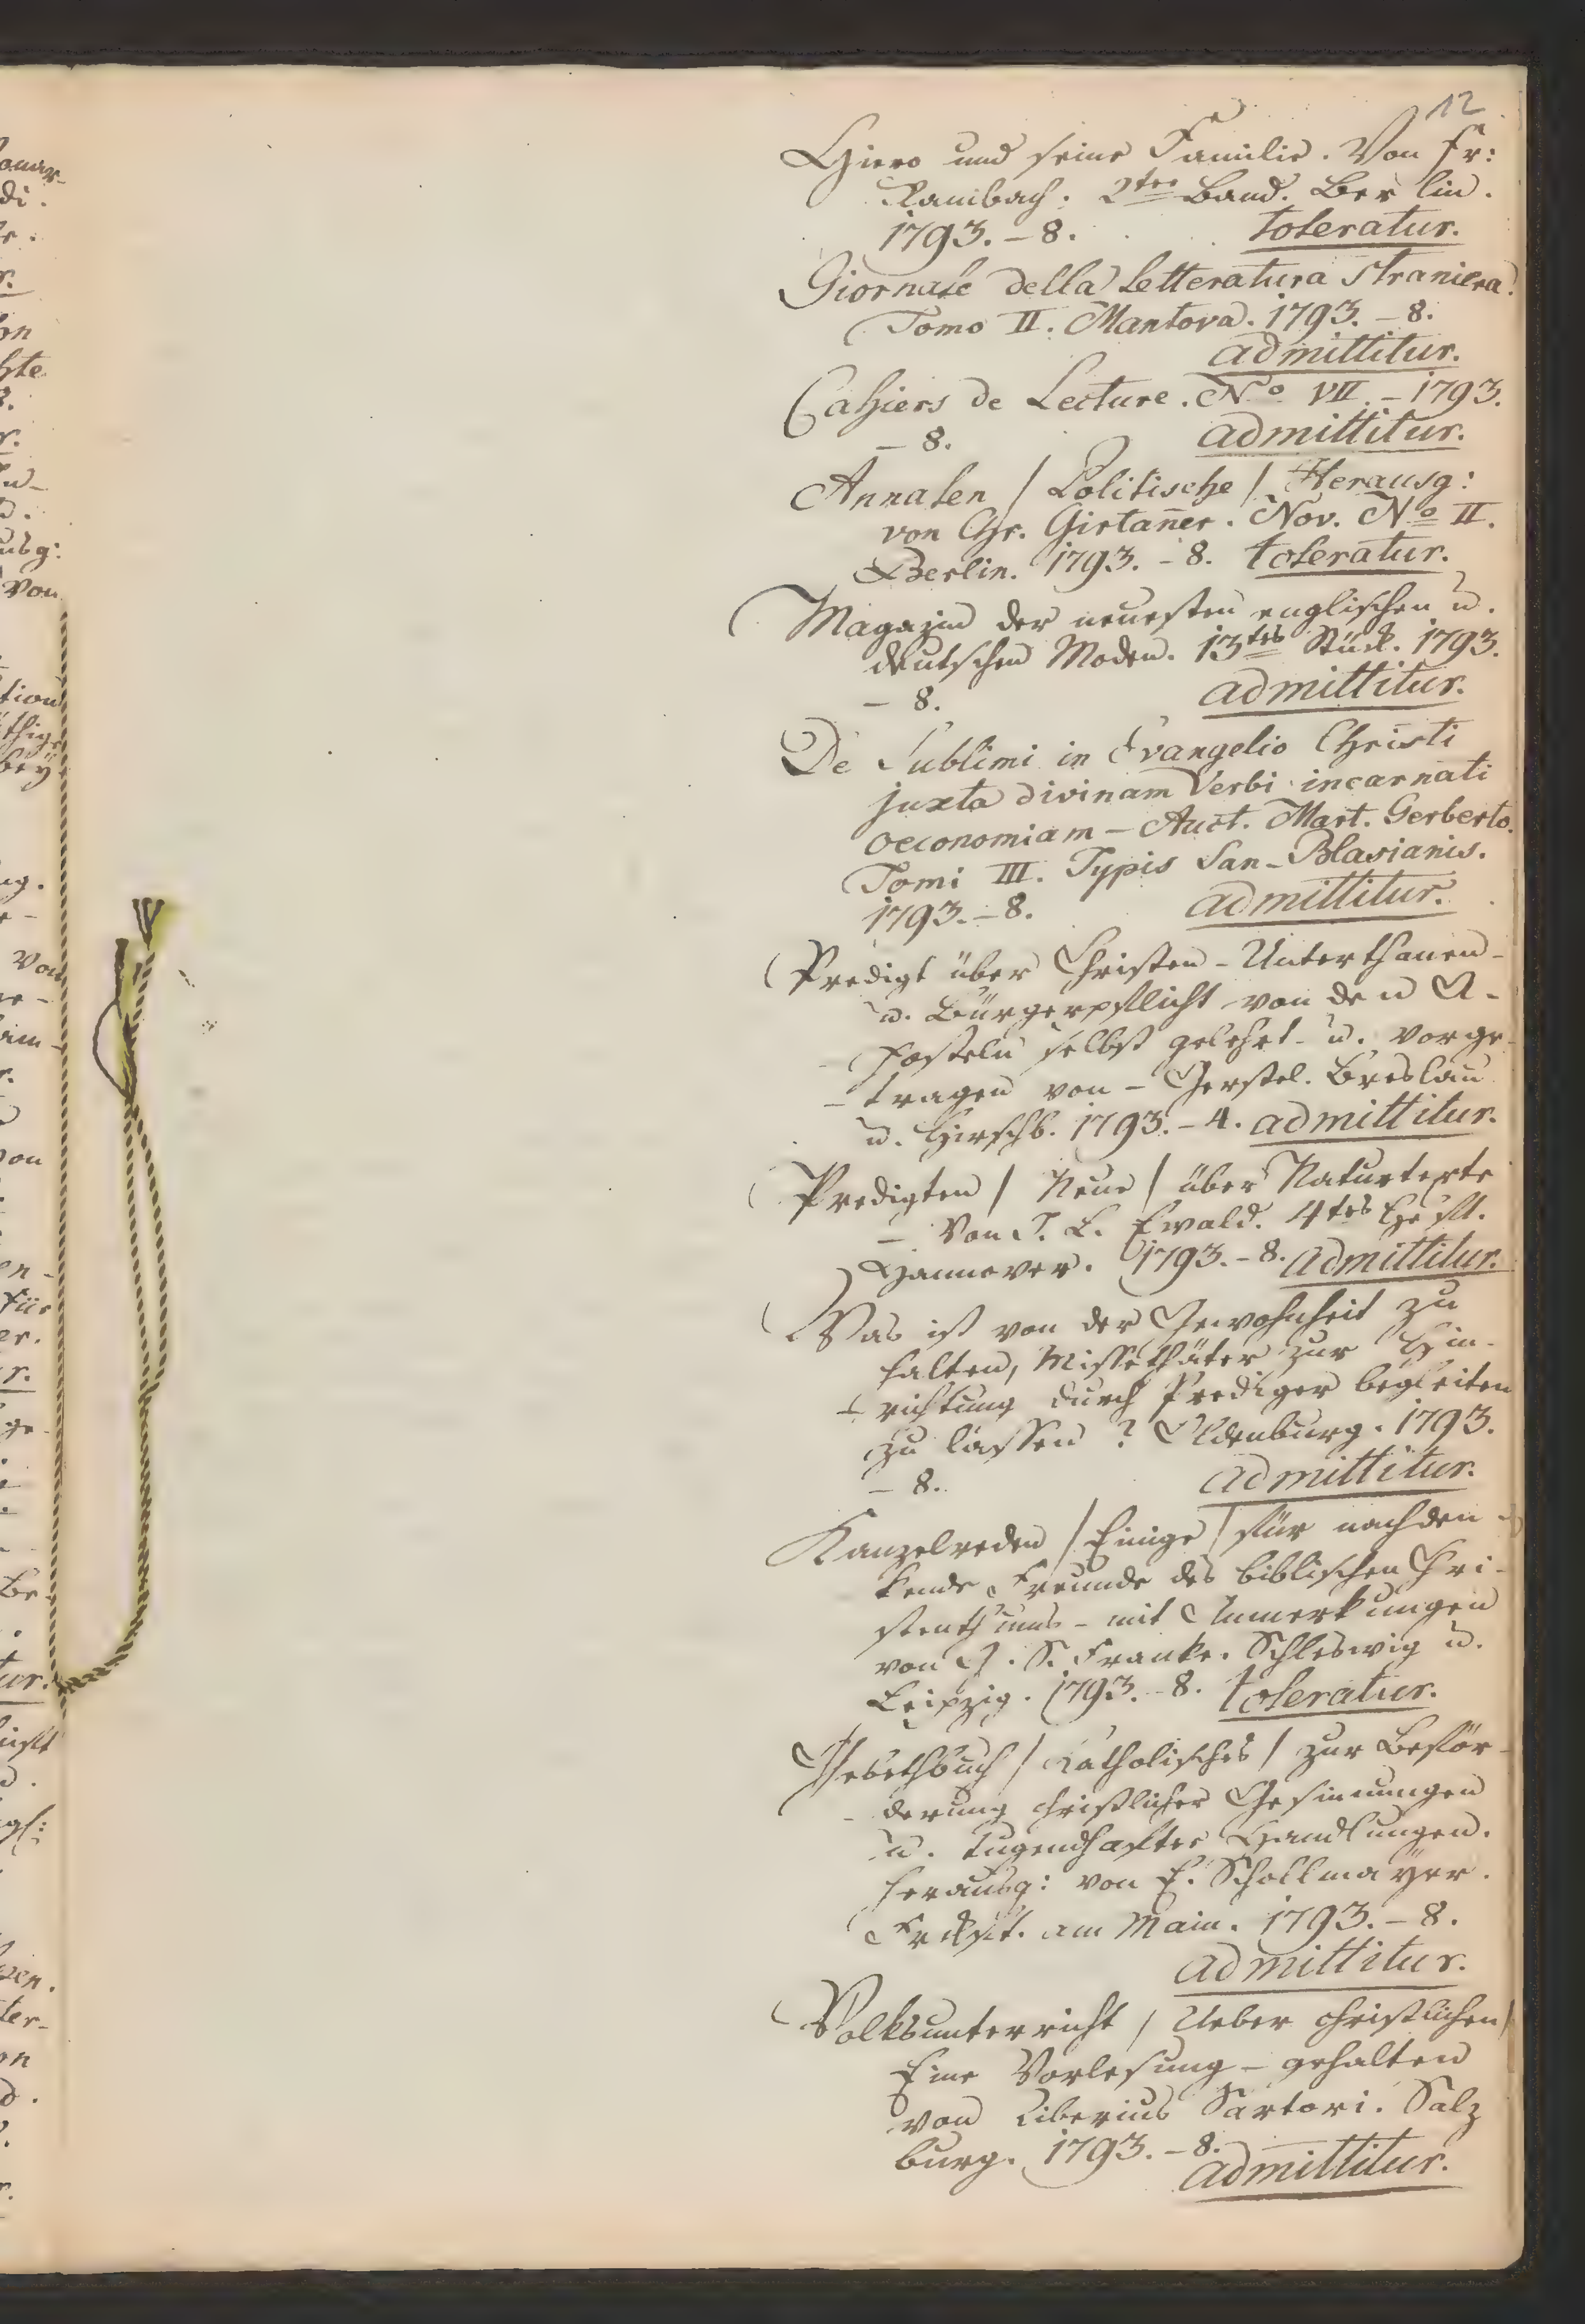 12
Hiero und seine Familie. Von Fr:
Rambach. 2ter Band. Berlin.
1793. – 8. toleratur.
Giornale della Letteratura straniera.
Tomo II. Mantova. 1793. – 8.
admittitur.
Cahiers de Lecture. No. VII. – 1793.
– 8. admittitur.
Annalen / Politische / Herausg:
von Chr. Girtan̄er. Nov. No II.
Berlin. 1793. – 8. toleratur.
Magazin der neuesten englischen u.
deutschen Moden. 13tes Stück. 1793.
– 8. admittitur.
De Sublimi in Evangelio Christi
juxta divinam Verbi incarnati
oeconomiam – Auct. Mart. Gerberto.
Tomi III. Typis San-Blasianis.
1793. – 8. admittitur.
Predigt über Christen- Unterthanen-
u. Bürgerpflicht von den A-
posteln selbst gelehrt u. vorge-
tragen von – Gerstel. Breslau
u. Hirschb. 1793. – 4. admittitur.
Predigten / Neue / über Naturtexte
– Von J. L. Ewald. 4tes Heft.
Hannover. 1793. – 8. admittitur.
Was ist von der Gewohnheit zu
halten, Missethäter zur Hin-
richtung durch Prediger begleiten
zu lassen? Oldenburg. 1793.
– 8. admittitur.
Kanzelreden / Einige / für nachden-
kende Freunde des biblischen Chri-
stenthums – mit Anmerkungen
von J. S. Franke. Schleswig u.
Leipzig. 1793. – 8. toleratur.
Gebethbuch / Katholisches / zur Beför-
derung christlicher Gesinnungen
u. tugendhafter Handlungen.
herausg: von E. Schallmayer.
Frckft. am Main. 1793. – 8.
admittitur.
Volksunterricht / Ueber christlichen /
Eine Vorlesung – gehalten
von Tiberius Sartori. Salz
burg. 1793. – 8.
admittitur.